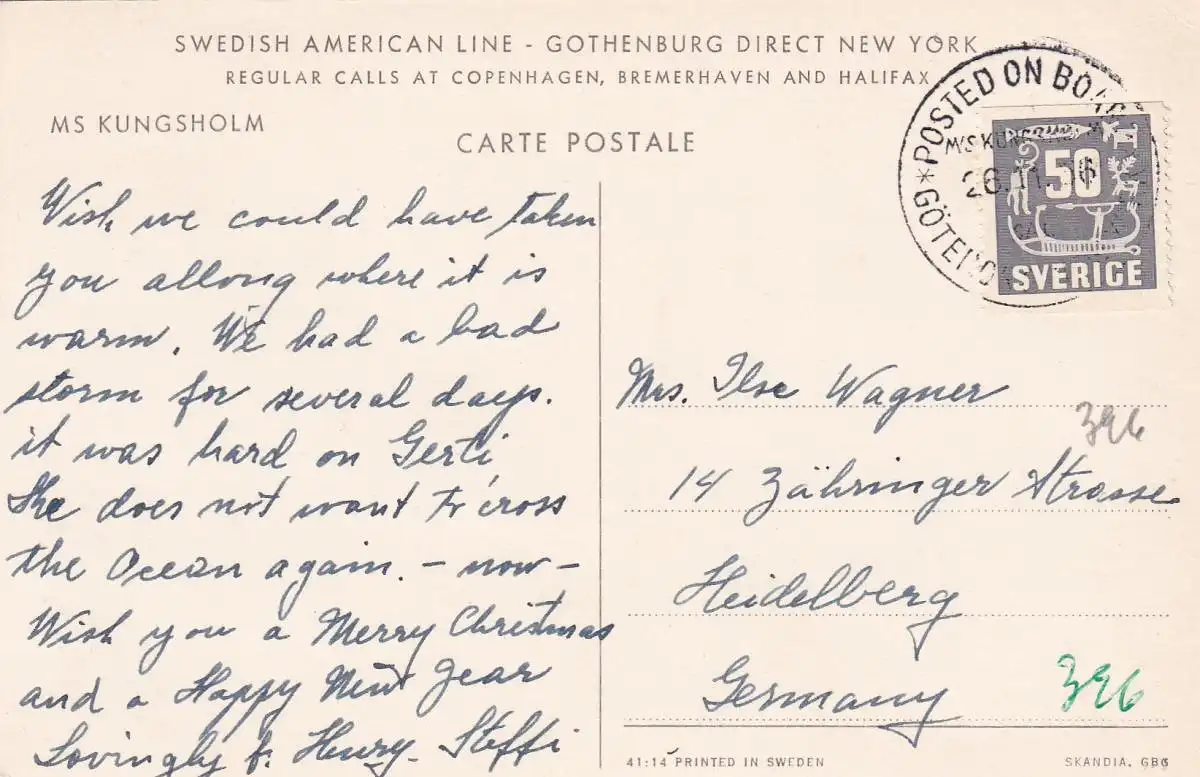 SWEDISH AMERICAN LINE - GOTHENBURG DIRECT NEW YORK
REGULAR CALLS AT COPENHAGEN, BREMERHAVEN AND HALIFAX
MS KUNGSHOLM
CARTE POSTALE
POSTED ON BOARD
M/S KUNGSHOLM
26.11.56
*GÖTEBORG
50
SVERIGE
Wish we could have taken
you allong where it is
warm. We had a bad
storm for several days.
it was hard on Gerti,
She does not want to cross
the Ocean again. - now -
Wish you a Merry Christmas
and a Happy New Year
Lovingly Henry. Steffi
Mrs. Ilse Wagner
396
14 Zähringer Strasse
Heidellberg
Germany
396
41:14 PRINTED IN SWEDEN
SKANDIA, GBG